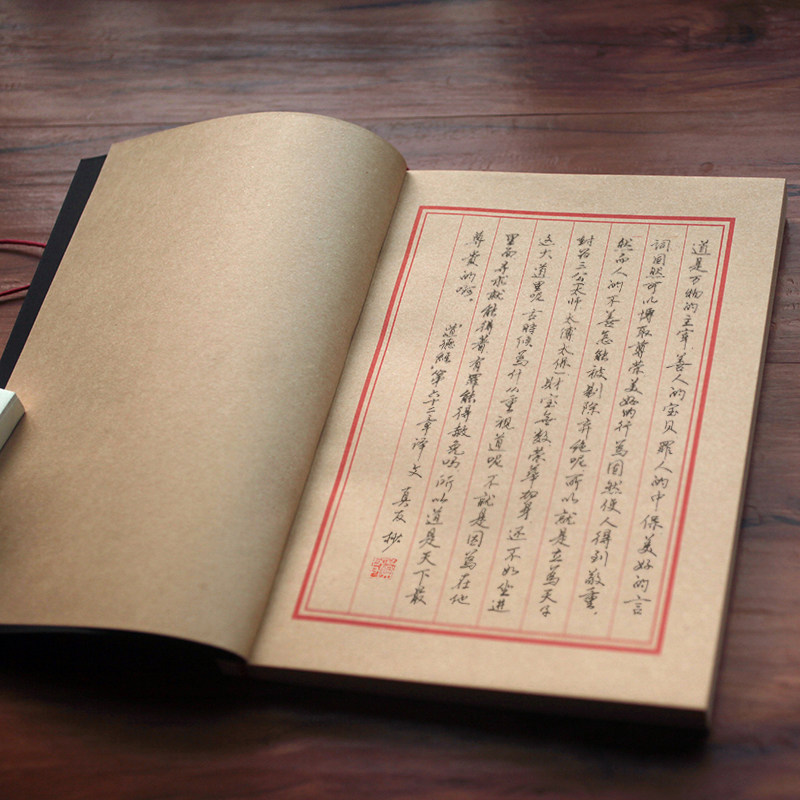 道是万物的主宰，善人的宝贝，罪人的中保，美好的言
词固然可以博取尊荣，美好的行為固然使人得到敬重，
然而人的不善怎能被剔除弃绝呢，可以就是立為天子
封為三公太师太傅太保，财宝無数荣華加身还不如坐進
这大道里呢。古時候為什么重視道呢，不就是因為在他
里面寻求就能得着，有罪能得赦免吗，所以道是天下最
尊贵的啊。
道德經，第六十二章译文 真友抄